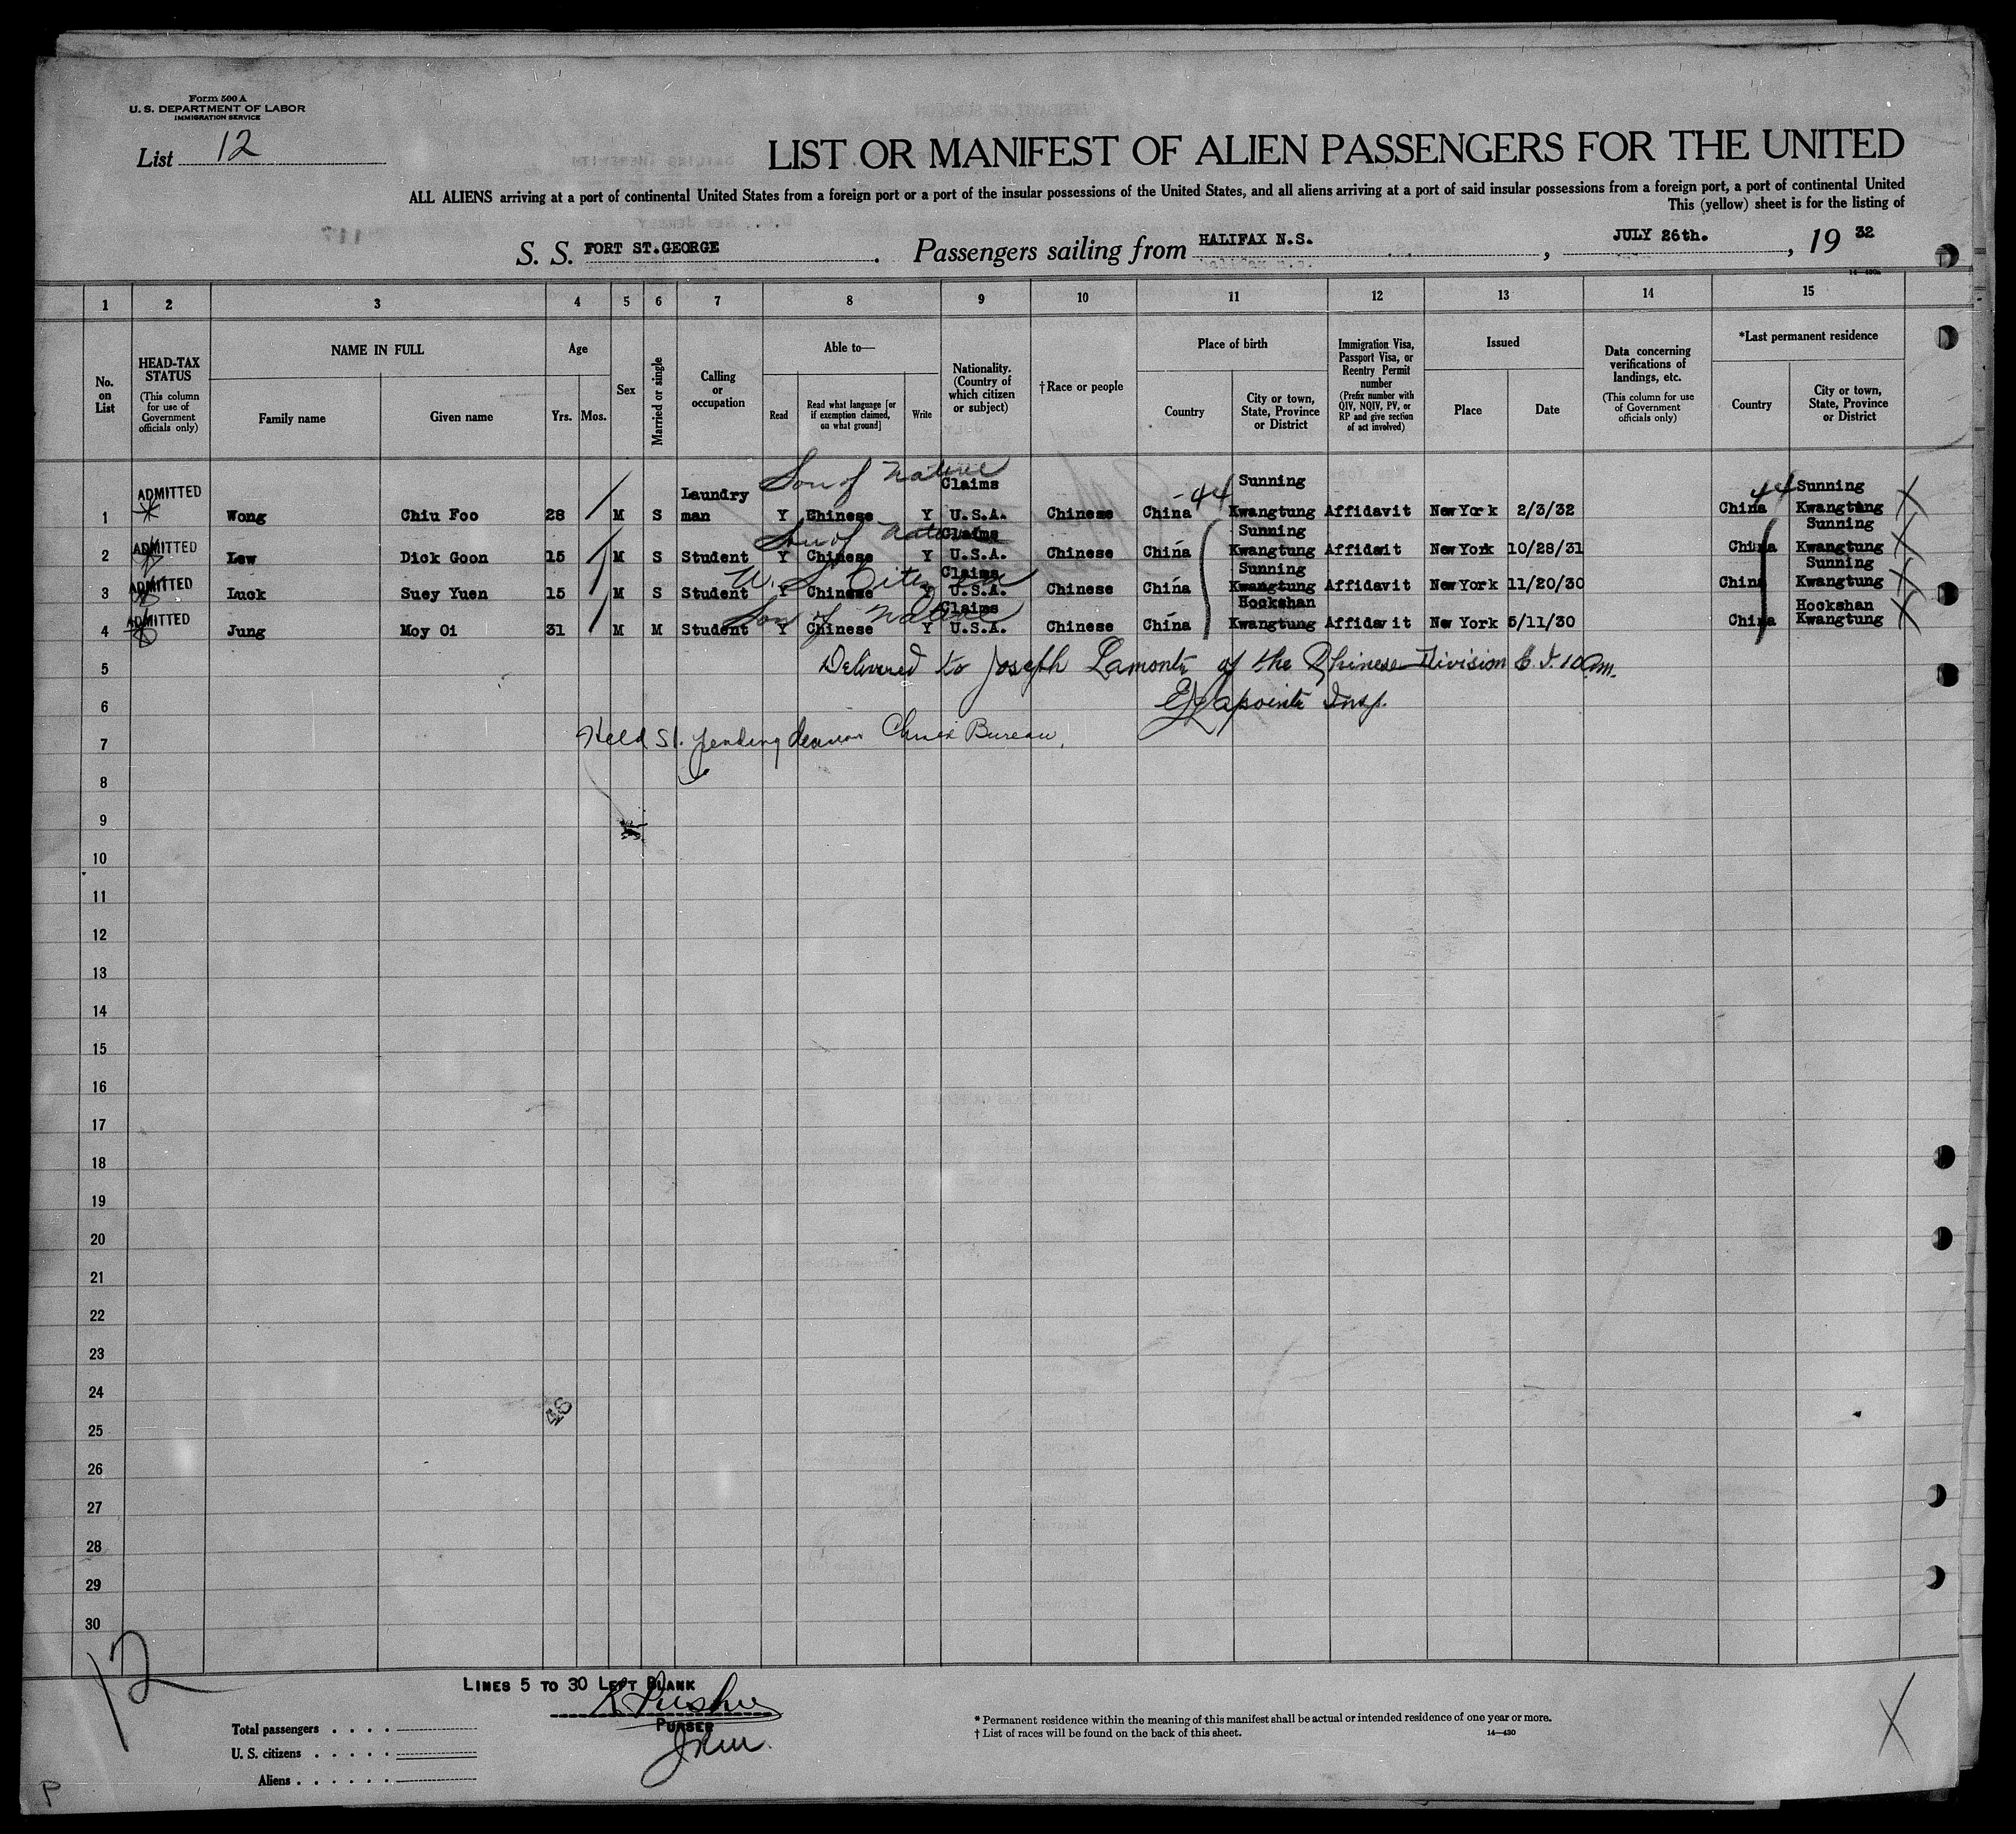 Form 500 A
U. S. DEPARTMENT OF LABOR
IMMIGRATION SERVICE
List 12
LIST OR MANIFEST OF ALIEN PASSENGERS FOR THE UNITED
ALL ALIENS arriving at a port of continental United States from a foreign port or a port of the insular possessions of the United States, and all aliens arriving at a port of said insular possessions from a foreign port, a port of continental United
This (yellow) sheet is for the listing of
S. S. FORT ST.GEORGE . Passengers sailing from HALIFAX N.S. , JULY 26th. , 19 32
1 2 3 4 5 6 7 8 9 10 11 12 13 14 15
No. on List
HEAD-TAX STATUS (This column for use of Government officials only)
NAME IN FULL
Family name Given name
Age
Yrs. Mos.
Sex
Married or single
Calling or occupation
Able to—
Read Read what language [or if exemption claimed, on what ground] Write
Nationality. (Country of which citizen or subject)
†Race or people
Place of birth
Country City or town, State, Province or District
Immigration Visa, Passport Visa, or Reentry Permit number (Prefix number with QIV, NQIV, PV, or RP and give section of act involved)
Issued
Place Date
Data concerning verifications of landings, etc. (This column for use of Government officials only)
*Last permanent residence
Country City or town, State, Province or District
Son of Native
ADMITTED Laundry Claims 44 Sunning 44 Sunning
1 Wong Chiu Foo 28 M S man Y Chinese Y U.S.A. Chinese China Kwangtung Affidavit New York 2/3/32 China Kwangtung X
Son of Native
ADMITTED Claims Sunning Sunning
2 Lew Dick Goon 15 M S Student Y Chinese Y U.S.A. Chinese China Kwangtung Affidavit New York 10/28/31 China Kwangtung X
U. S. Citizen
ADMITTED Claims Sunning Sunning
3 Luck Suey Yuen 15 M S Student Y Chinese Y U.S.A. Chinese China Kwangtung Affidavit New York 11/20/30 China Kwangtung X
Son of Native
ADMITTED Claims Hockshan Hockshan
4 Jung Moy Oi 31 M M Student Y Chinese Y U.S.A. Chinese China Kwangtung Affidavit New York 5/11/30 China Kwangtung X
5 Delivered to Joseph Lamont of the Chinese Division 10 am.
6 Lapointe Insp.
7 Held S.I. pending Bureau
8
9
10
11
12
13
14
15
16
17
18
19
20
21
22
23
24
25
26
27
28
29
30
12
LINES 5 TO 30 LEFT BLANK
PURSER
Total passengers . . . .
U. S. citizens . . . . .
Aliens . . . . . .
* Permanent residence within the meaning of this manifest shall be actual or intended residence of one year or more.
† List of races will be found on the back of this sheet.
14—430
X
P